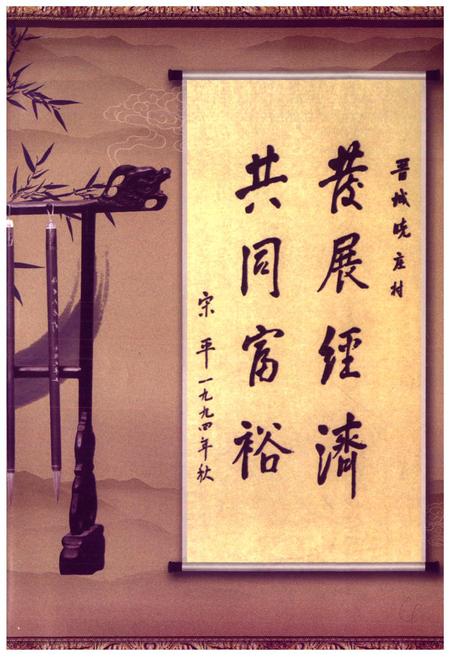 晋城晓庄村
發展經濟
共同富裕
宋平一九九四年秋